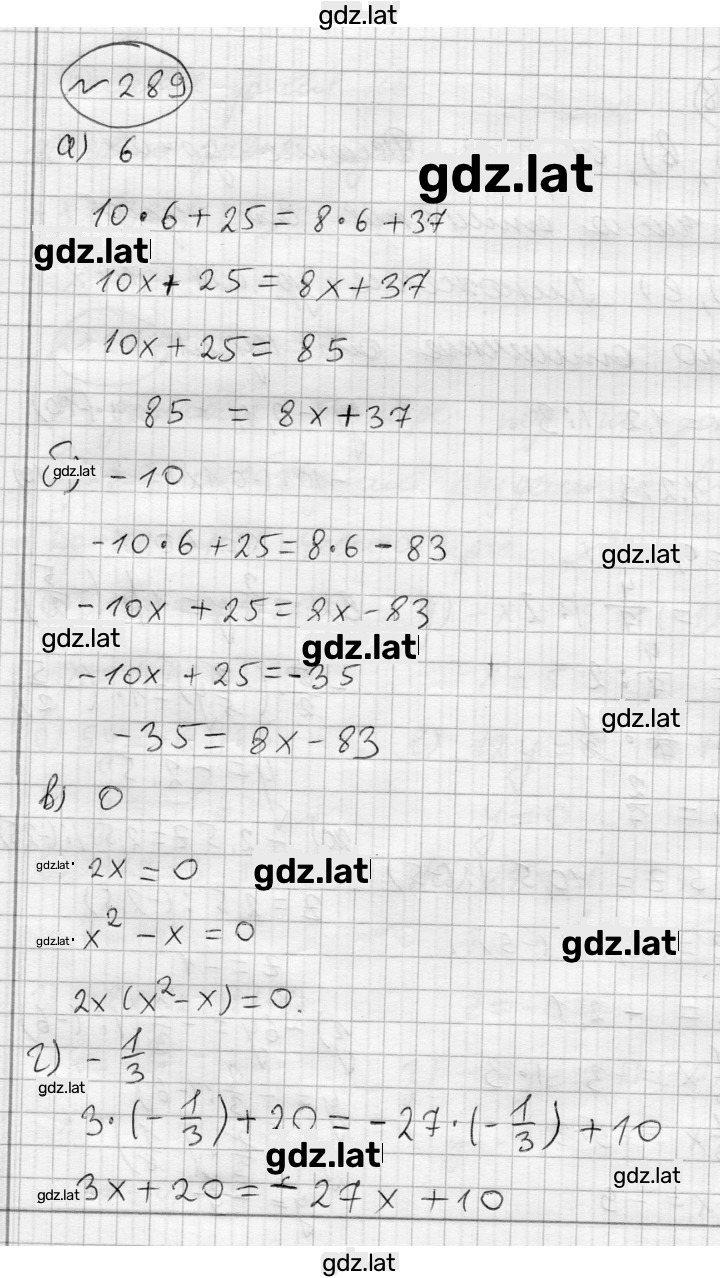 gdz.lat
№ 289
а) 6
gdz.lat
10 · 6 + 25 = 8 · 6 + 37
gdz.lat
10x + 25 = 8x + 37
10x + 25 = 85
85 = 8x + 37
б) - 10
gdz.lat
-10 · 6 + 25 = 8 · 6 - 83
gdz.lat
-10x + 25 = 8x - 83
gdz.lat
gdz.lat
-10x + 25 = -35
gdz.lat
-35 = 8x - 83
в) 0
gdz.lat
2x = 0
gdz.lat
gdz.lat
x² - x = 0
gdz.lat
2x (x² - x) = 0.
г) - 1/3
gdz.lat
3 · (- 1/3) + 20 = -27 · (- 1/3) + 10
gdz.lat
gdz.lat
gdz.lat
3x + 20 = - 27x + 10
gdz.lat